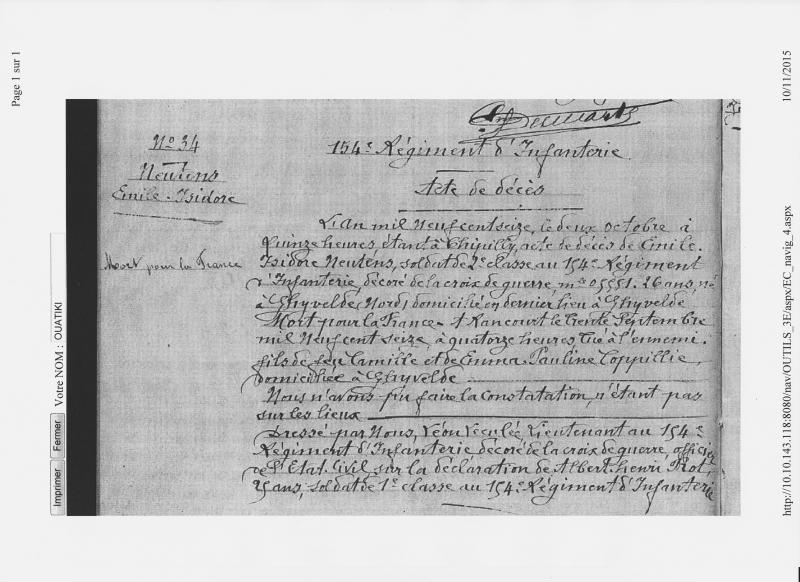 Page 1 sur 1
10/11/2015
Nº 34
Neutens
Emile-Isidore
Mort pour la France
154e Régiment d'Infanterie
Acte de décès
L'An mil Neuf cent seize, le deux octobre à
Quinze heures, étant à Chipilly, acte de décès de Emile-
Isidore Neutens, soldat de 2e classe au 154e Régiment
d'Infanterie, décoré de la croix de guerre, mle 05551. 26 ans, né
à Ghyvelde (Nord) domicilié en dernier lieu à Ghyvelde
Mort pour la France - A Rancourt le trente Septembre
mil Neuf cent seize, à quatorze heures tué à l'ennemi.
fils de feu Camille et de Emma-Pauline Coppillie,
domiciliée à Ghyvelde
Nous n'avons pu faire la constatation, n'étant pas
sur les lieux
Dressé par Nous, Léon Lieutenant au 154e
Régiment d'Infanterie décoré de la croix de guerre, officier
de l'Etat-Civil sur la déclaration de Albert henri
25 ans, soldat de 1e classe au 154e Régiment d'Infanterie
Votre NOM : OUATIKI
Imprimer Fermer
http://10.10.143.118:8080/nav/OUTILS_3E/aspx/EC_navig_4.aspx